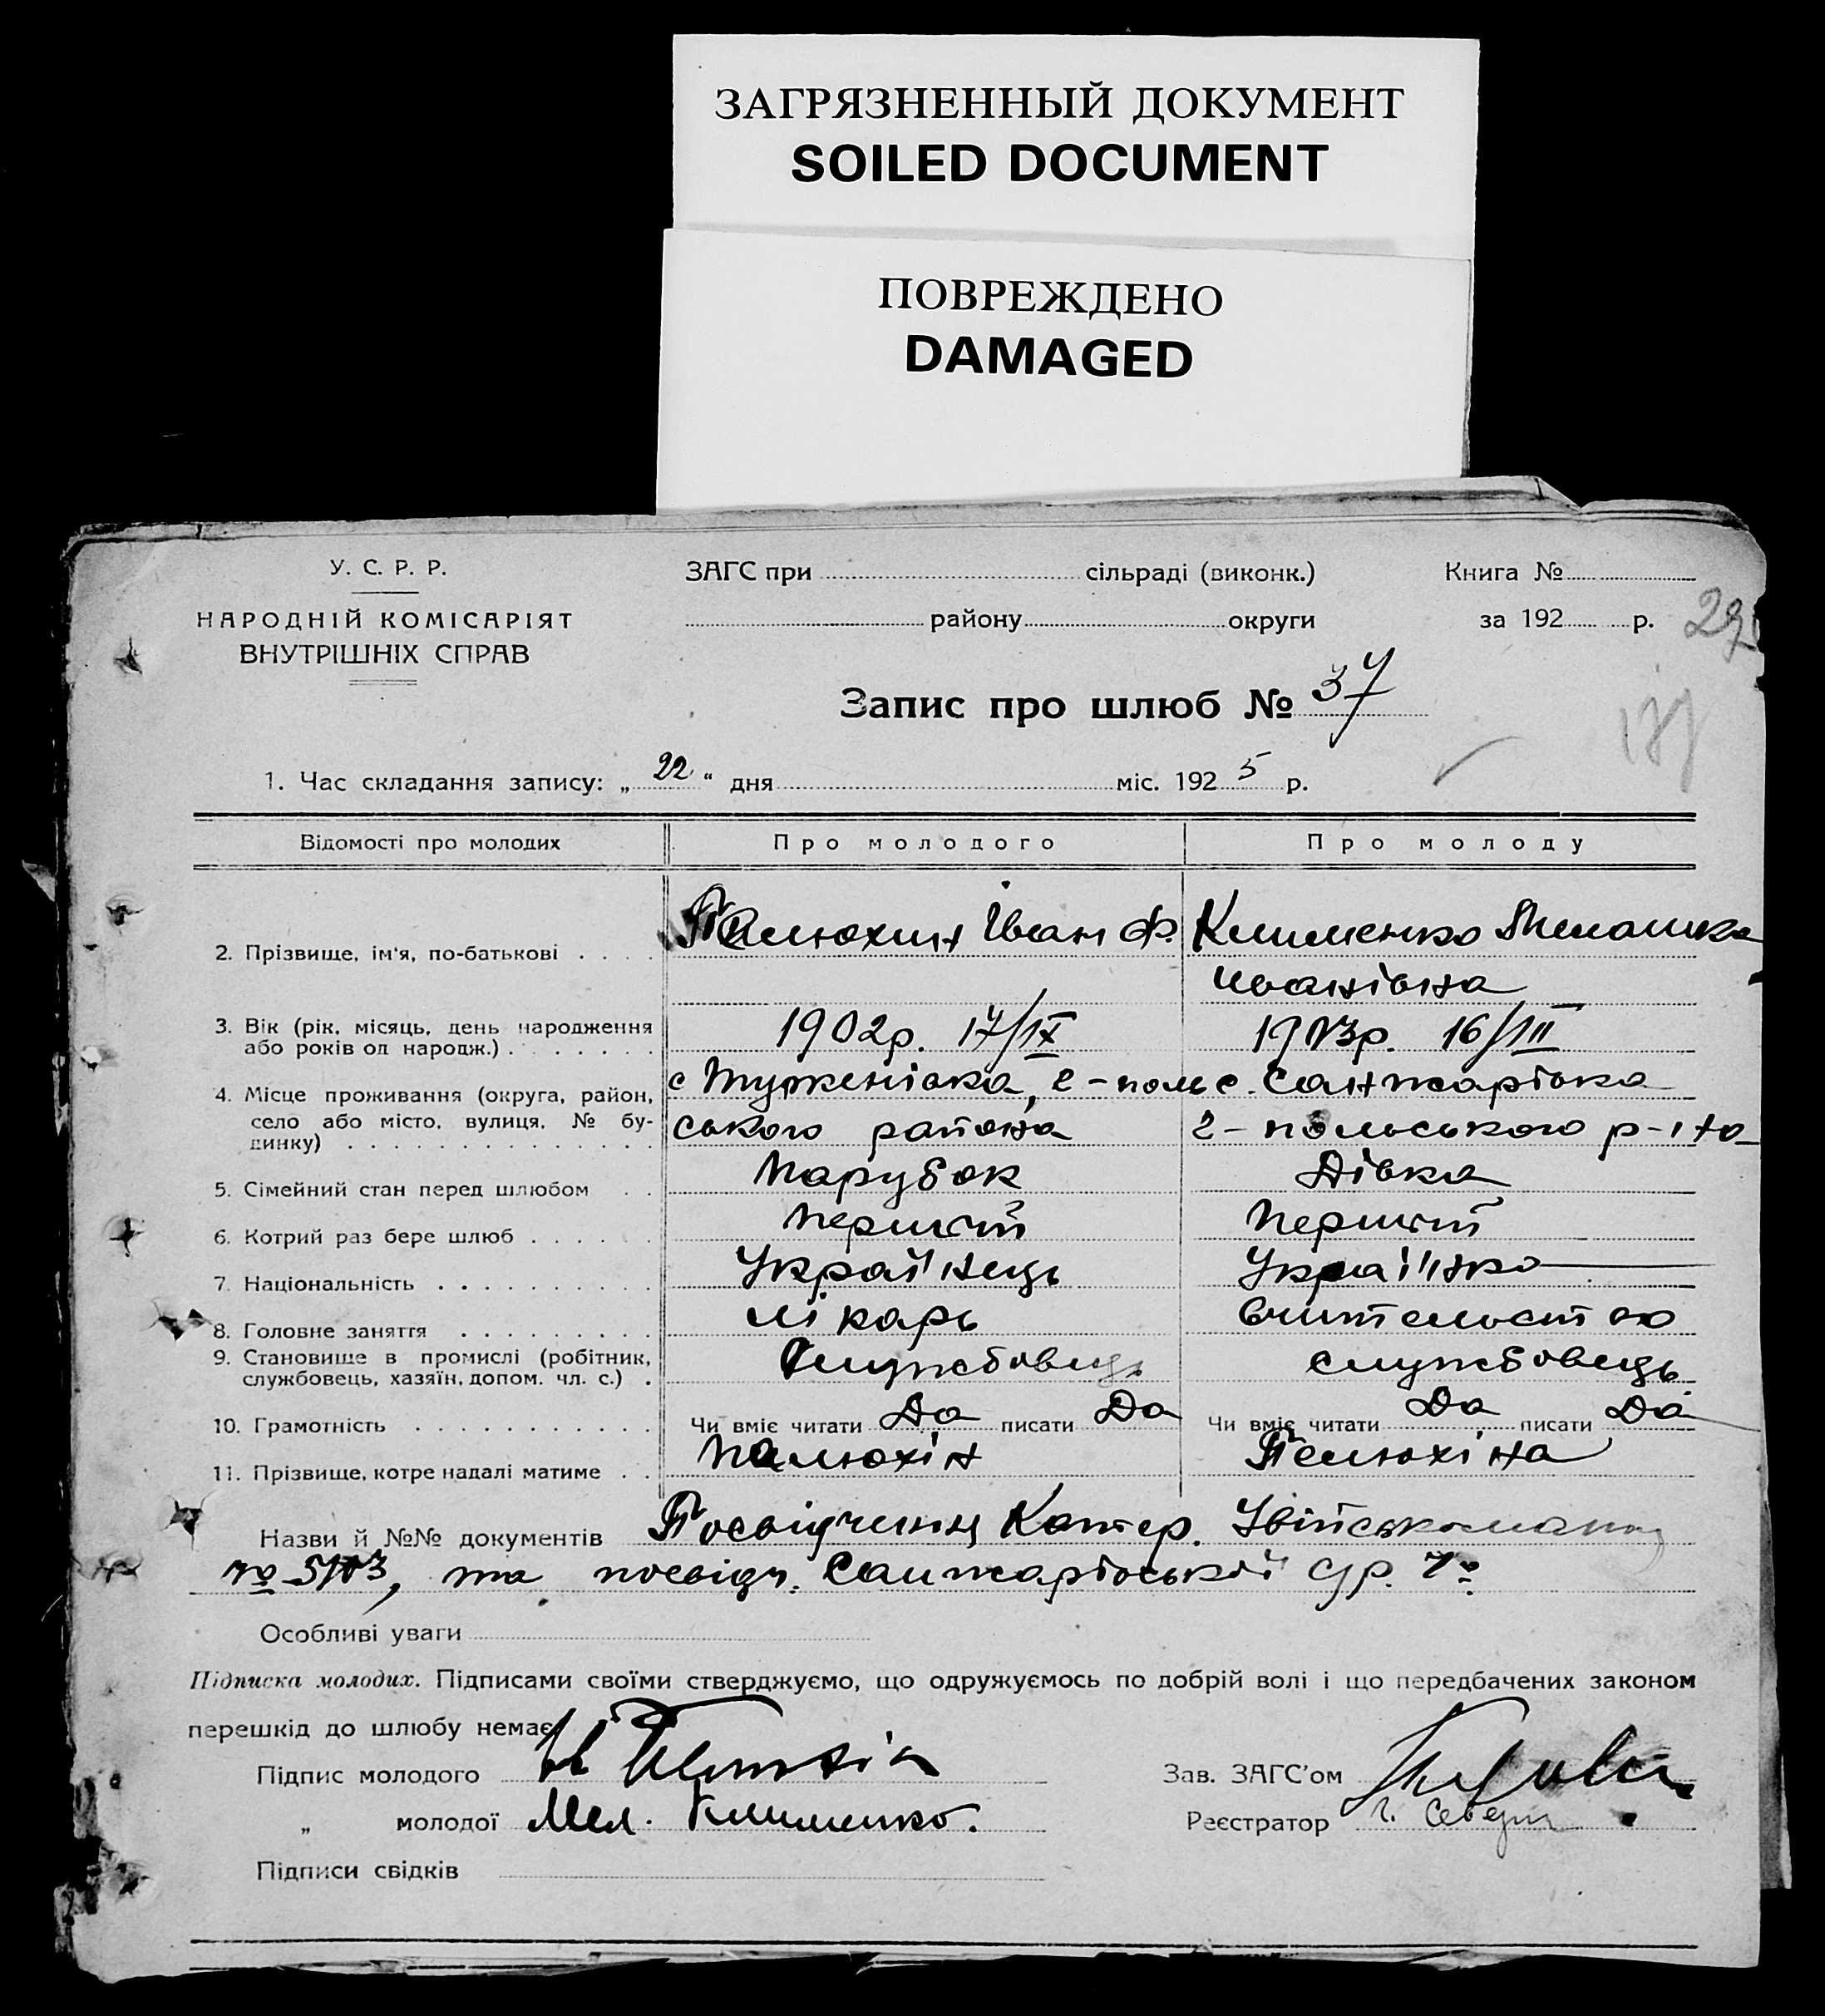 ЗАГРЯЗНЕННЫЙ ДОКУМЕНТ
SOILED DOCUMENT
ПОВРЕЖДЕНО
DAMAGED
У. С. Р. Р.
НАРОДНІЙ КОМІСАРІЯТ
ВНУТРІШНІХ СПРАВ
ЗАГС при сільраді (виконк.)
району округи
Книга №
за 192 р.
29
Запис про шлюб № 37
1. Час складання запису: „ 22 “ дня міс. 192 5 р.
Відомості про молодих Про молодого Про молоду
2. Прізвище, ім'я, по-батькові . . . . Іван Ф. Клименко Мелашка
Иванівна
3. Вік (рік, місяць, день народження
або років од народж.) . . . . . . . 1902р. 17/IX 16/III
4. Місце проживання (округа, район, с Туженівка, г-поль с. Санжарівка
село або місто, вулиця, № бу- ського района г-польського р-на
динку) . . . . . . . . . . . . . .
5. Сімейний стан перед шлюбом . . Парубок Дівка
6. Котрий раз бере шлюб . . . . . . Перший Перший
7. Національність . . . . . . . . . . Українець Українка
8. Головне заняття . . . . . . . . . лікарь
9. Становище в промислі (робітник,
службовець, хазяїн, допом. чл. с.) . Службовець службовець
10. Грамотність . . . . . . . . . . . Чи вміє читати Да писати Да Чи вміє читати Да писати Да
11. Прізвище, котре надалі матиме . . Палюхін Пелюхіна
Назви й №№ документів Посвідчення Катер.
та посвідч. Санжарівської с/р. №
Особливі уваги
Підписка молодих. Підписами своїми стверджуємо, що одружуємось по добрій волі і що передбачених законом
перешкід до шлюбу немає
Підпис молодого
Зав. ЗАГС'ом
„ молодої Мел. Клименко.
Реєстратор
Підписи свідків